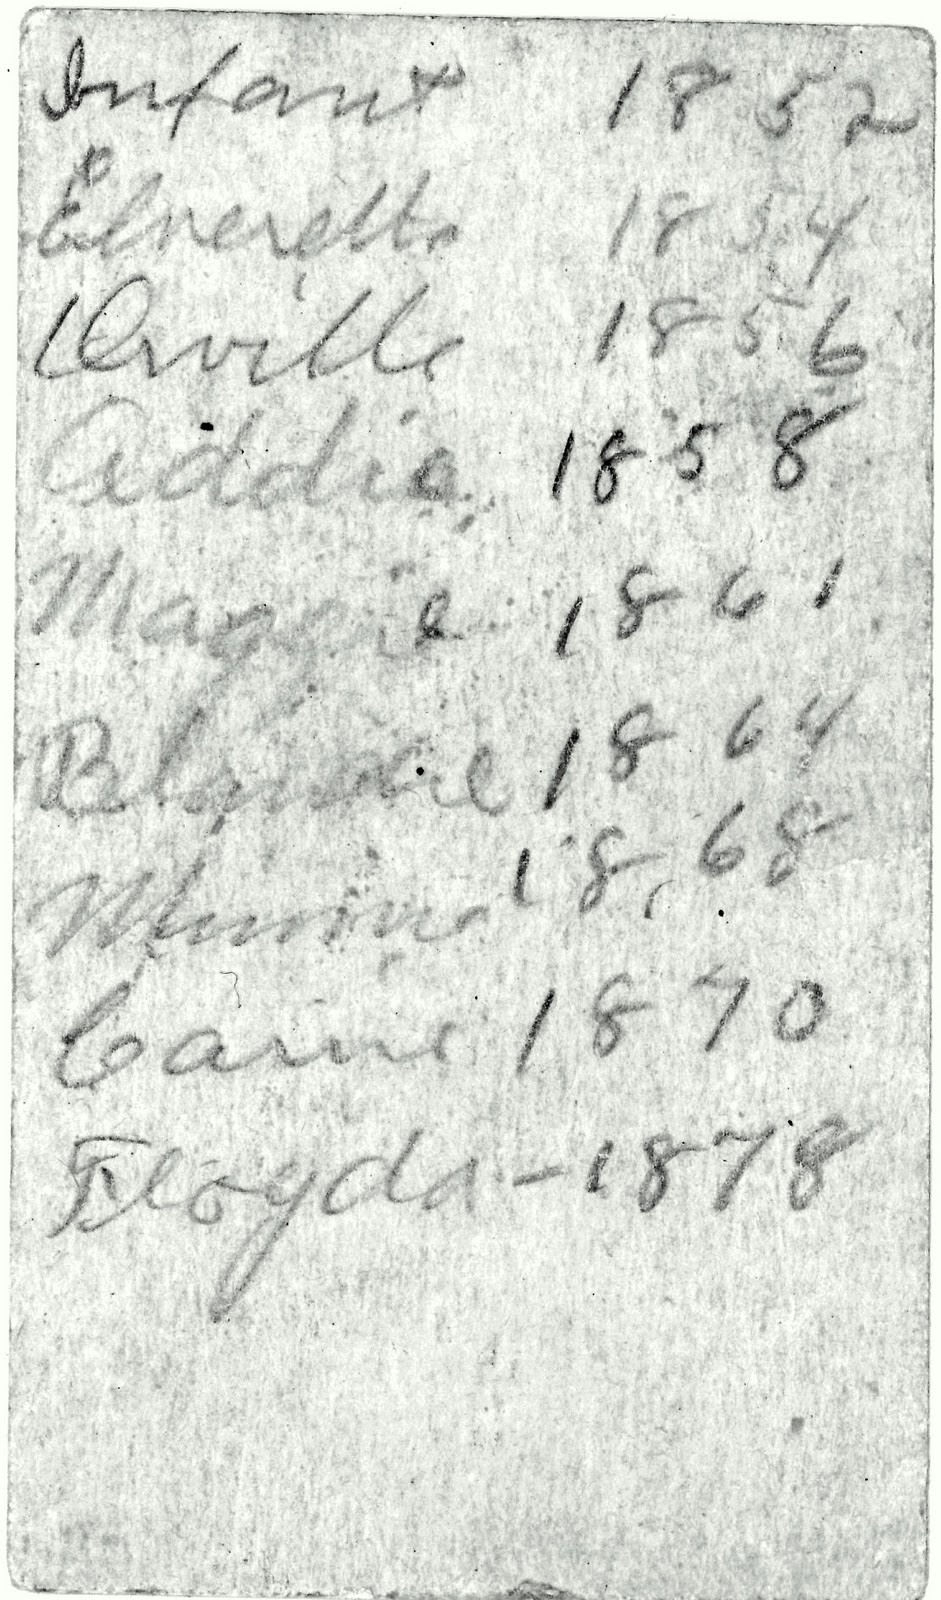 Infant 1852
Elveretta 1854
Orville 1856
Addie 1858
Maggie 1861
Blanche 1864
Minnie 1868
Carrie 1870
Floyda - 1878